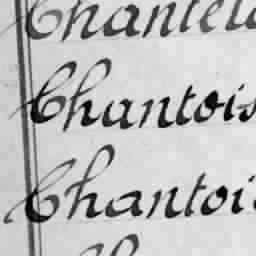 Chantela
Chantois
Chantois